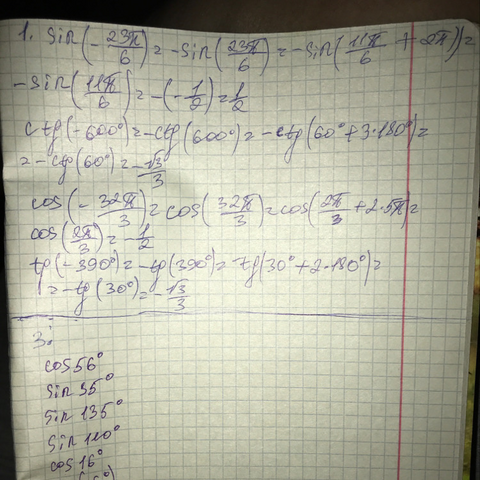 1. sin(-23π/6) = -sin(23π/6) = -sin(11π/6 + 2π) =
-sin(11π/6) = -(-1/2) = 1/2
ctg(-600°) = -ctg(600°) = -ctg(60° + 3·180°) =
= -ctg(60°) = -√3/3
cos(-32π/3) = cos(32π/3) = cos(2π/3 + 2·5π) =
cos(2π/3) = -1/2
tg(-390°) = -tg(390°) = tg(30° + 2·180°) =
= -tg(30°) = -√3/3
3.
cos 56°
sin 35°
sin 135°
sin 120°
cos 16°